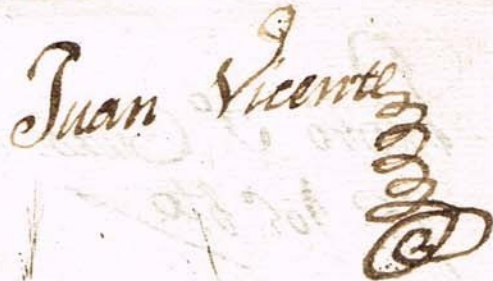 Juan Vicente